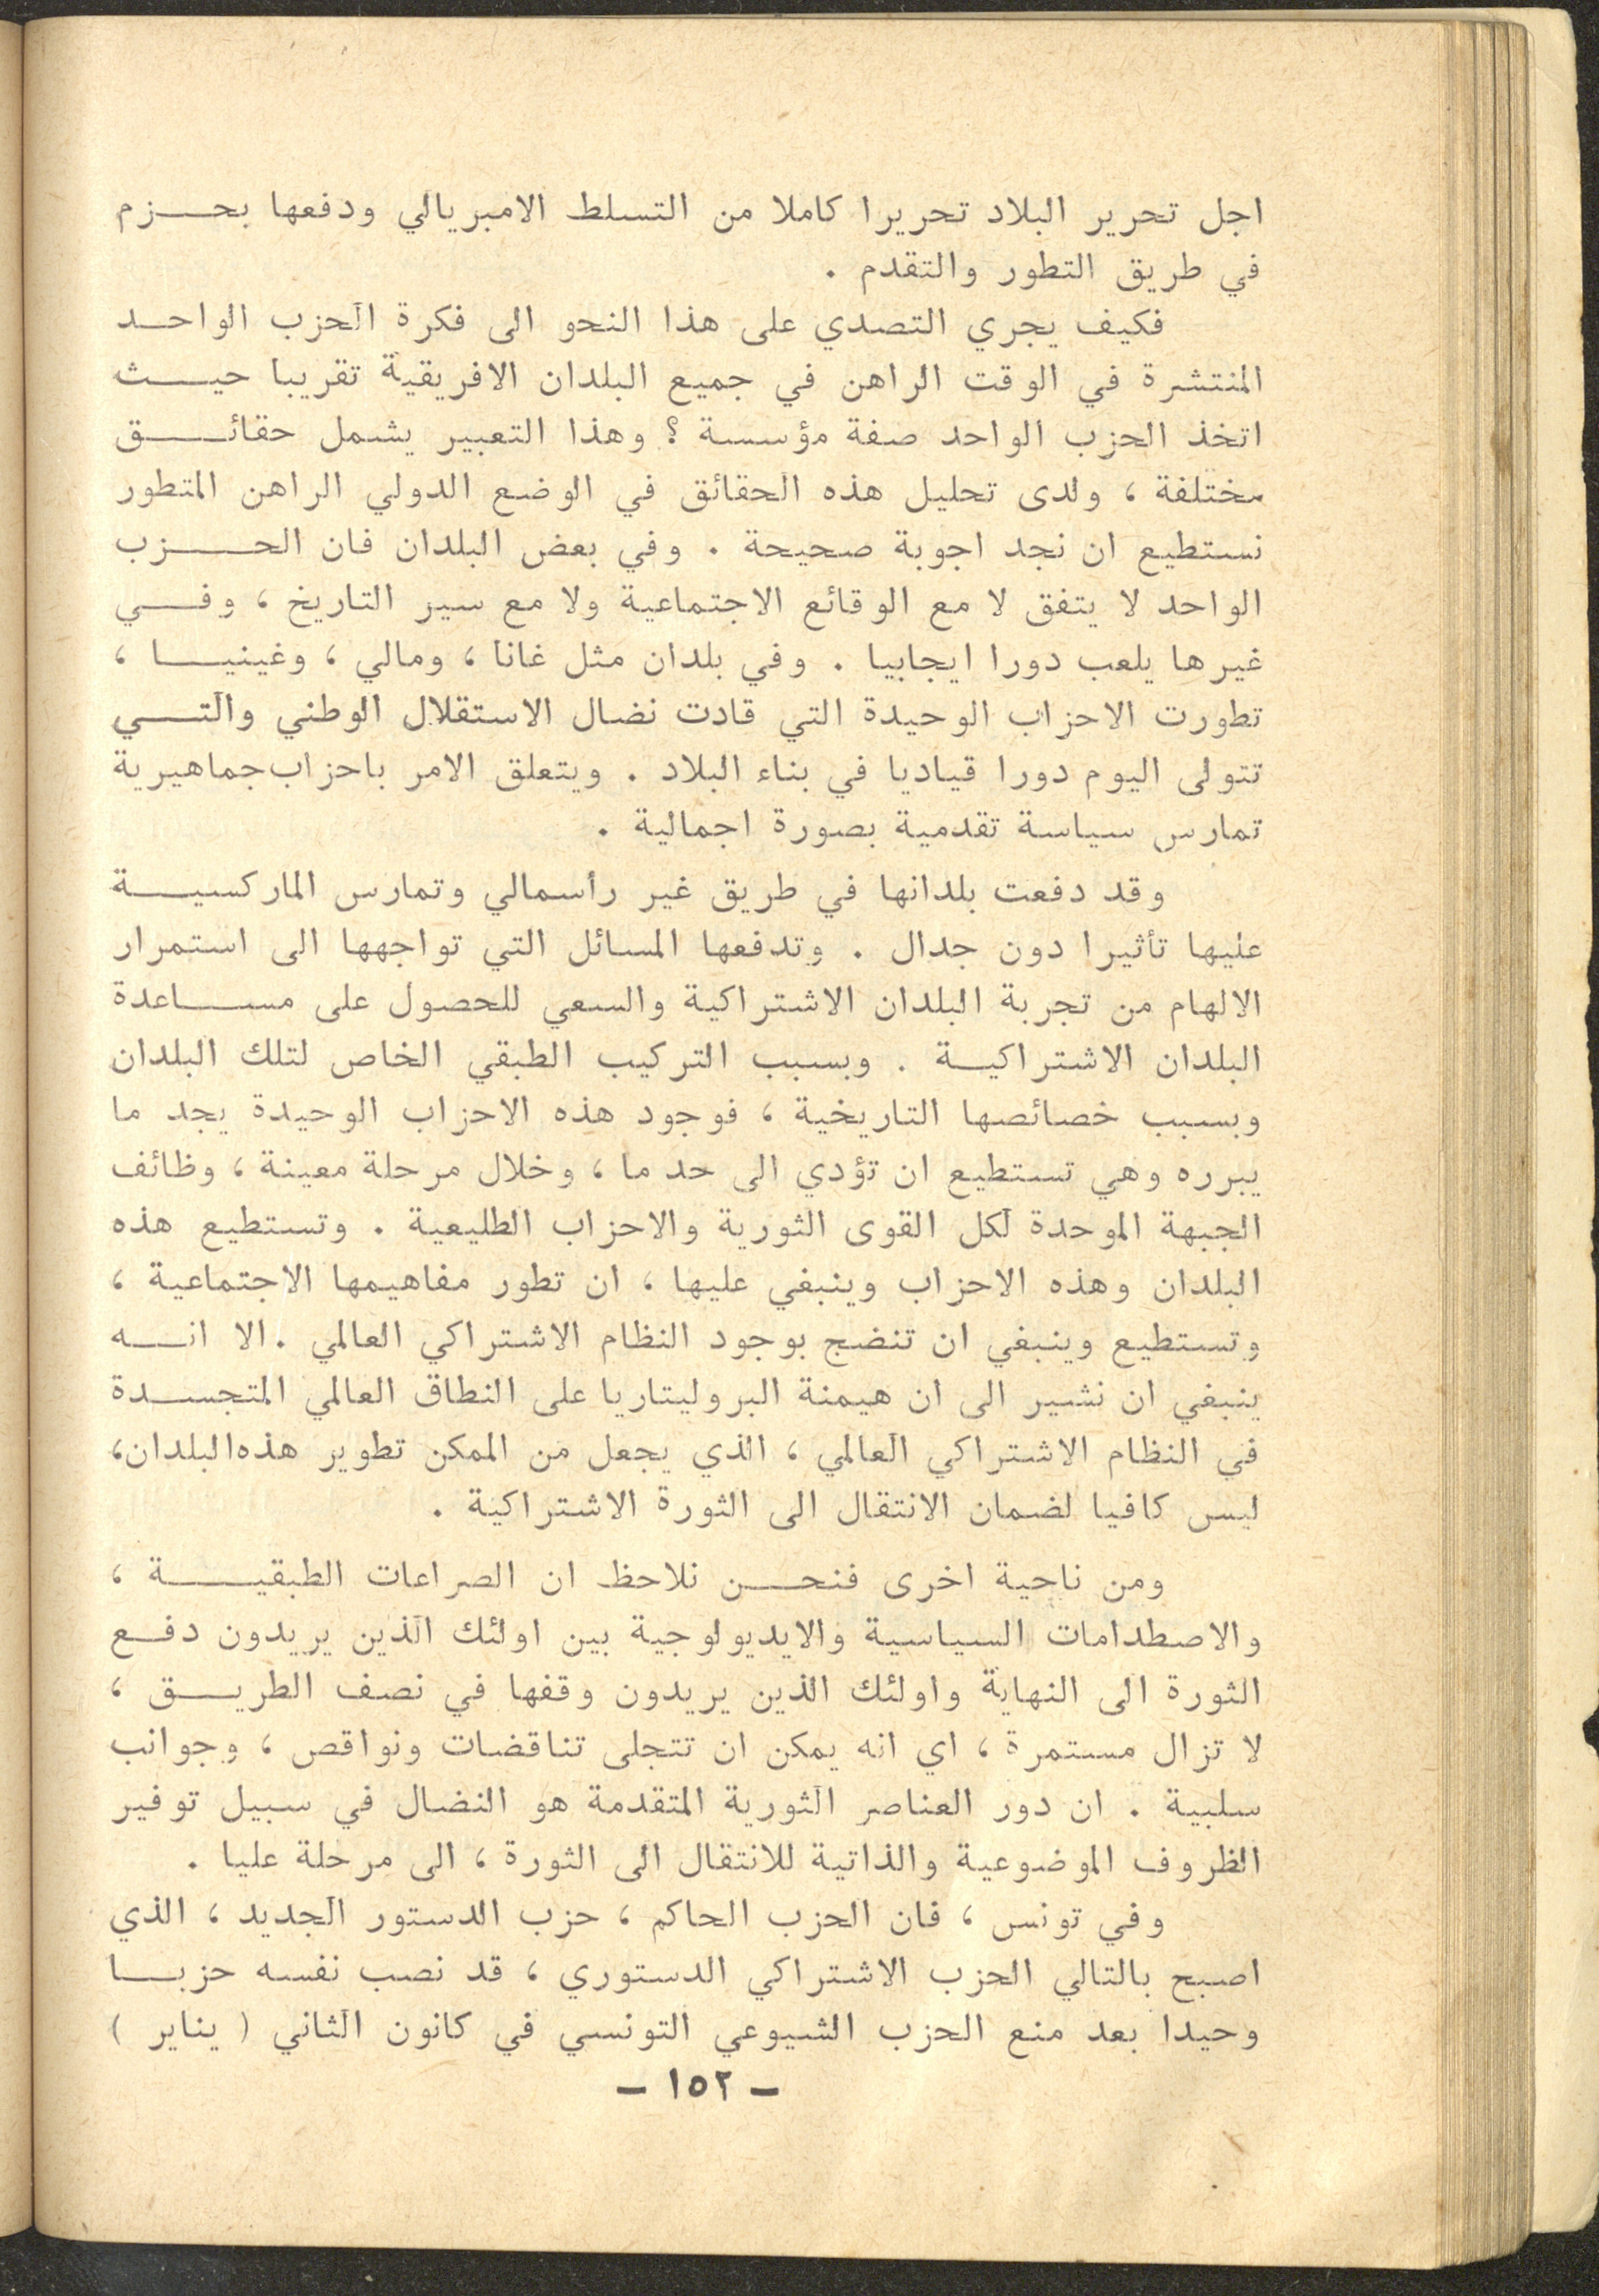 اجل تحرير البلاد تحريرا كاملا من التسلط الامبريالي ودفعها بحـــزم
في طريق التطور والتقدم .
فكيف يجري التصدي على هذا النحو الى فكرة الحزب الواحـد
المنتشرة في الوقت الراهن في جميع البلدان الافريقية تقريبا حيـــث
اتخذ الحزب الواحد صفة مؤسسة ؟ وهذا التعبير يشمل حقائـــق
مختلفة ، ولدى تحليل هذه الحقائق في الوضع الدولي الراهن المتطور
نستطيع ان نجد اجوبة صحيحة . وفي بعض البلدان فان الحـــزب
الواحد لا يتفق لا مع الوقائع الاجتماعية ولا مع سير التاريخ ، وفـــي
غيرها يلعب دورا ايجابيا . وفي بلدان مثل غانا ، ومالي ، وغينيـــا ،
تطورت الاحزاب الوحيدة التي قادت نضال الاستقلال الوطني والتـــي
تتولى اليوم دورا قياديا في بناء البلاد . ويتعلق الامر باحزاب جماهيرية
تمارس سياسة تقدمية بصورة اجمالية .
وقد دفعت بلدانها في طريق غير رأسمالي وتمارس الماركسيـــة
عليها تأثيرا دون جدال . وتدفعها المسائل التي تواجهها الى استمرار
الالهام من تجربة البلدان الاشتراكية والسعي للحصول على مســـاعدة
البلدان الاشتراكيـة . وبسبب التركيب الطبقي الخاص لتلك البلدان
وبسبب خصائصها التاريخية ، فوجود هذه الاحزاب الوحيدة يجد ما
يبرره وهي تستطيع ان تؤدي الى حد ما ، وخلال مرحلة معينة ، وظائف
الجبهة الموحدة لكل القوى الثورية والاحزاب الطليعية . وتستطيع هذه
البلدان وهذه الاحزاب وينبغي عليها ، ان تطور مفاهيمها الاجتماعية ،
وتستطيع وينبغي ان تنضج بوجود النظام الاشتراكي العالمي . الا انـــه
ينبغي ان نشير الى ان هيمنة البروليتاريا على النطاق العالمي المتجســدة
في النظام الاشتراكي العالمي ، الذي يجعل من الممكن تطوير هذه البلدان،
ليس كافيا لضمان الانتقال الى الثورة الاشتراكية .
ومن ناحية اخرى فنحـــن نلاحظ ان الصراعات الطبقيـــة ،
والاصطدامات السياسية والايديولوجية بين اولئك الذين يريدون دفـع
الثورة الى النهاية واولئك الذين يريدون وقفها في نصف الطريـــق ،
لا تزال مستمرة ، اي انه يمكن ان تتجلى تناقضات ونواقص ، وجوانب
سلبية . ان دور العناصر الثورية المتقدمة هو النضال في سبيل توفير
الظروف الموضوعية والذاتية للانتقال الى الثورة ، الى مرحلة عليا .
وفي تونس ، فان الحزب الحاكم ، حزب الدستور الجديد ، الذي
اصبح بالتالي الحزب الاشتراكي الدستوري ، قد نصب نفسه حزبـــا
وحيدا بعد منع الحزب الشيوعي التونسي في كانون الثاني ( يناير )
ـ ١٥٢ ـ